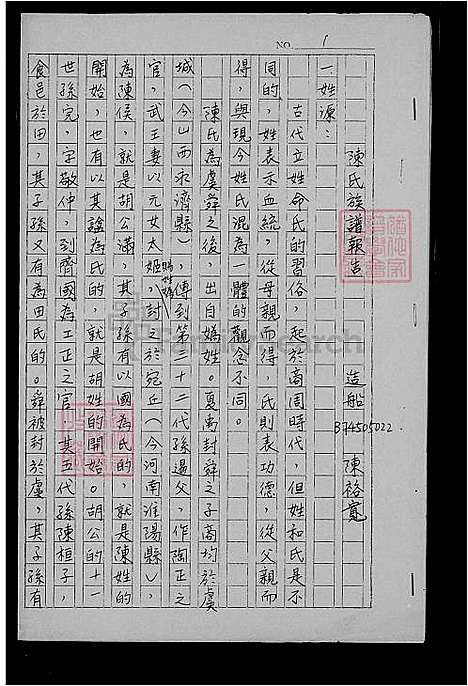 NO. 1
陳氏族譜報告 造船 B74505022 陳裕寬
一姓源:
古代立姓命氏的習俗,起於商周時代,但姓和氏是不
同的,姓表示血統,從母親而得,氏則表功德,從父親而
得,與現今姓氏混為一體的觀念不同。
陳氏為虞舜之後,出自媯姓。夏禹封舜之子商均於虞
城(今山西永濟縣),傳到第三十二代孫遏父,作陶正之
官,武王妻以元女太姬,賜姓媯,封之於宛丘(今河南淮陽縣),
為陳侯,就是胡公滿,其子孫有以國為氏的,就是陳姓的
開始,也有以其諡為氏的,就是胡姓的開始。胡公的十一
世孫完,字敬仲,到齊國為工正之官,其五代孫陳桓子,
食邑於田,其子孫又有為田氏的。舜被封於虞,其子孫有